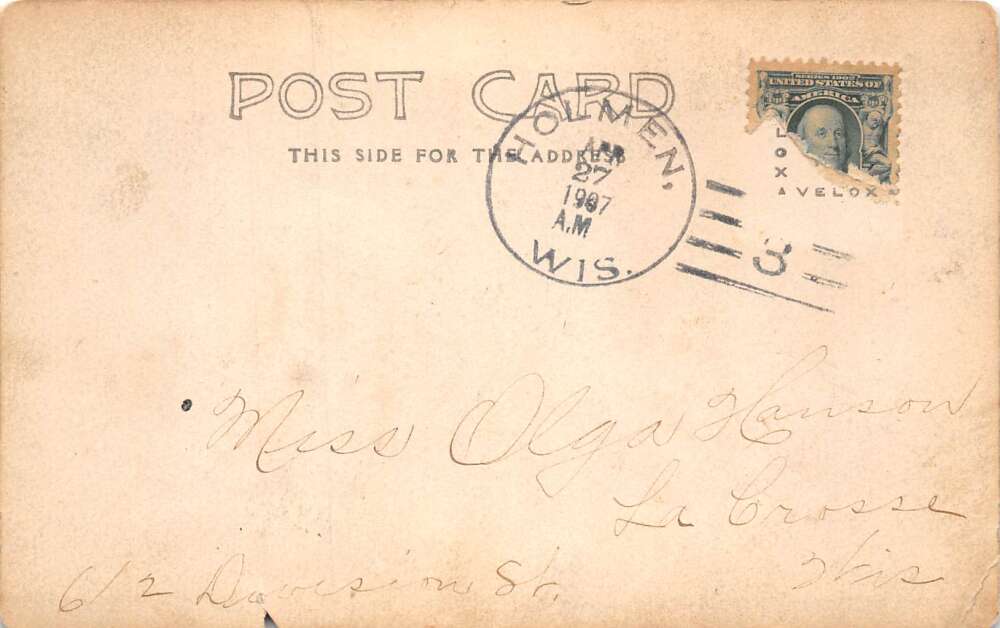 POST CARD
THIS SIDE FOR THE ADDRESS
SERIES 1902
UNITED STATES OF
AMERICA
LOX
VELOX
HOLMEN,
27
1907
A.M.
WIS.
3
Miss Olga Hanson
La Crosse
Wis
612 Division St.